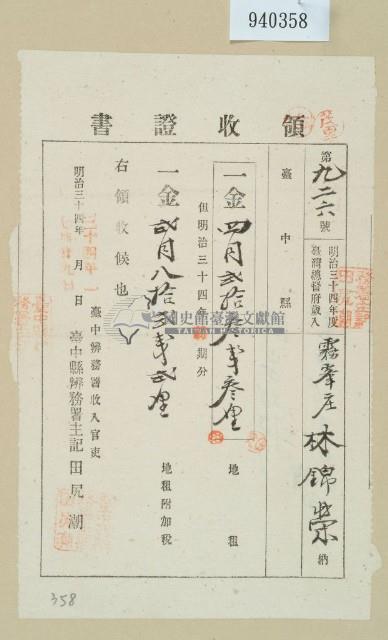 940358
領收證書
第九二六號
明治三十四年度
臺灣總督府歲入
霧峯庄 林錦榮 納
臺中縣
一金四円貳拾參錢參厘 地租
但明治三十四年 期分
一金貳円八拾 錢貳厘 地租附加稅
右領收候也
明治三十四年 月 日
臺中辨務署收入官吏
臺中縣辨務署主記田尻潮
國史館臺灣文獻館
TAIWAN HISTORICA
358